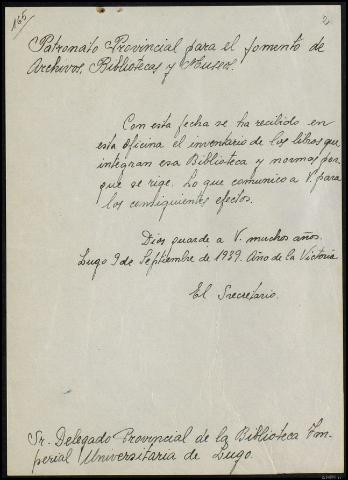 165
2
Patronato Provincial para el fomento de
Archivos, Bibliotecas y Museos.
Con esta fecha se ha recibido en
esta oficina el inventario de los libros que
integran esa Biblioteca y normas por
que se rige. Lo que comunico a V. para
los consiguientes efectos.
Dios guarde a V. muchos años.
Lugo 9 de Septiembre de 1939. Año de la Victoria
El Srecretario.
Sr. Delegado Provincial de la Biblioteca Im-
perial Universitaria de Lugo.